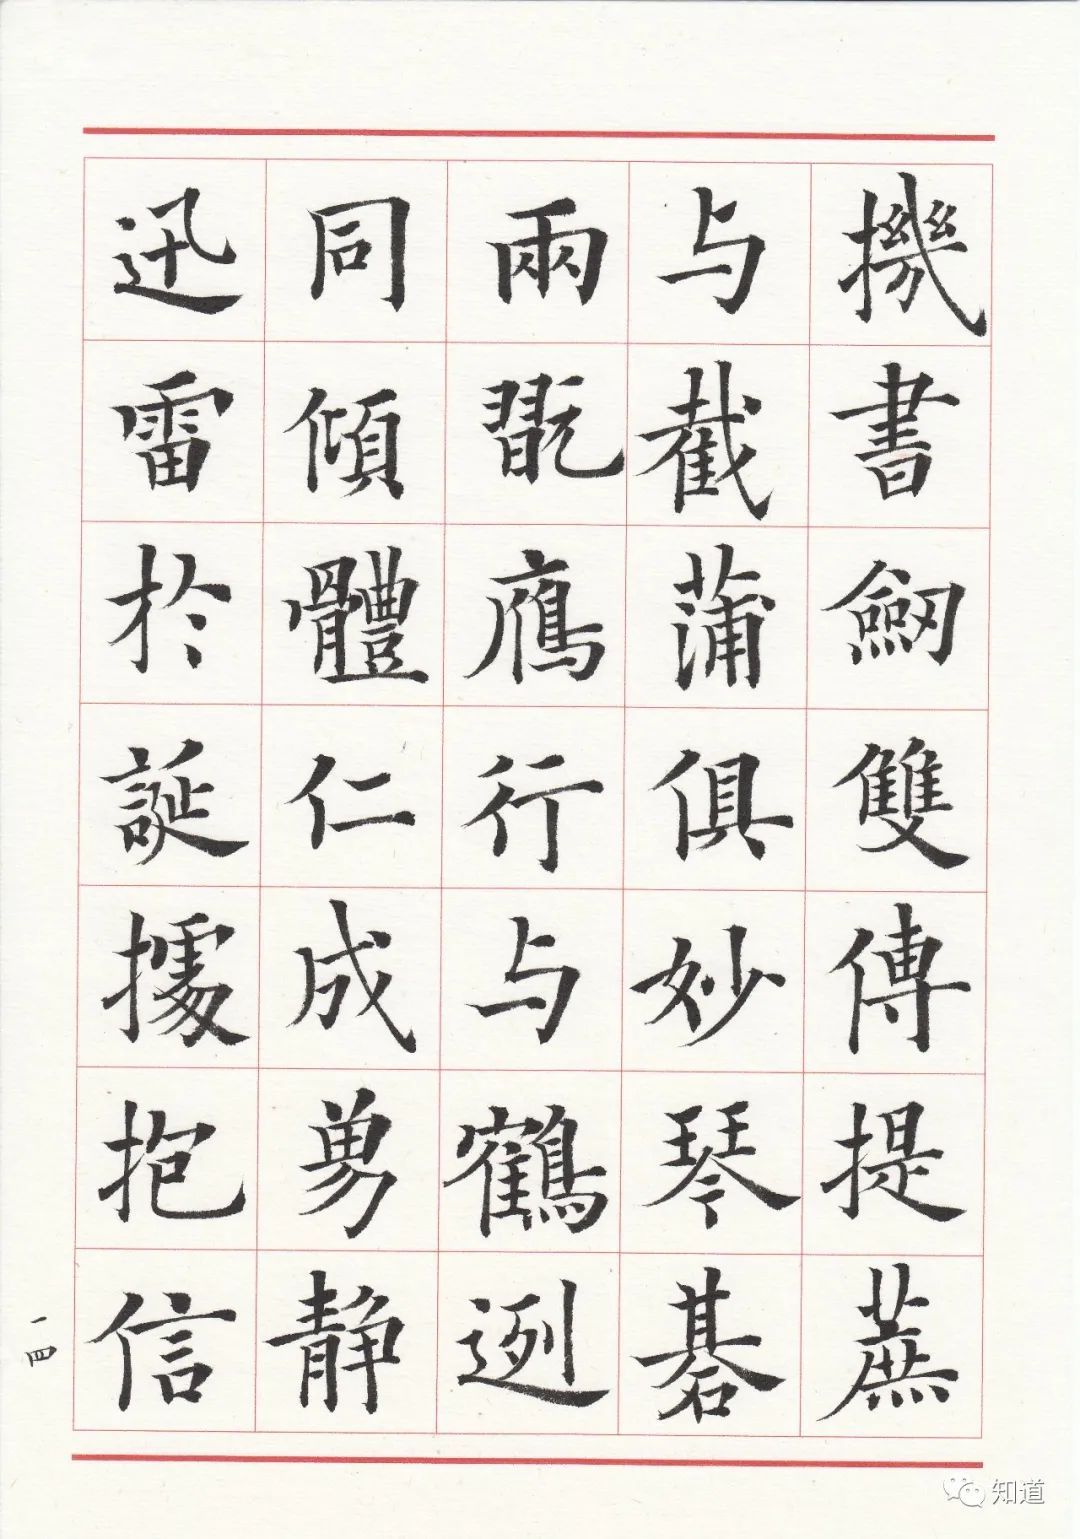 機書劒雙傳提蔗
与截蒲俱妙琴碁
兩翫鴈行与鶴迾
同傾體仁成勇静
迅雷於誕據抱信
一四
知道